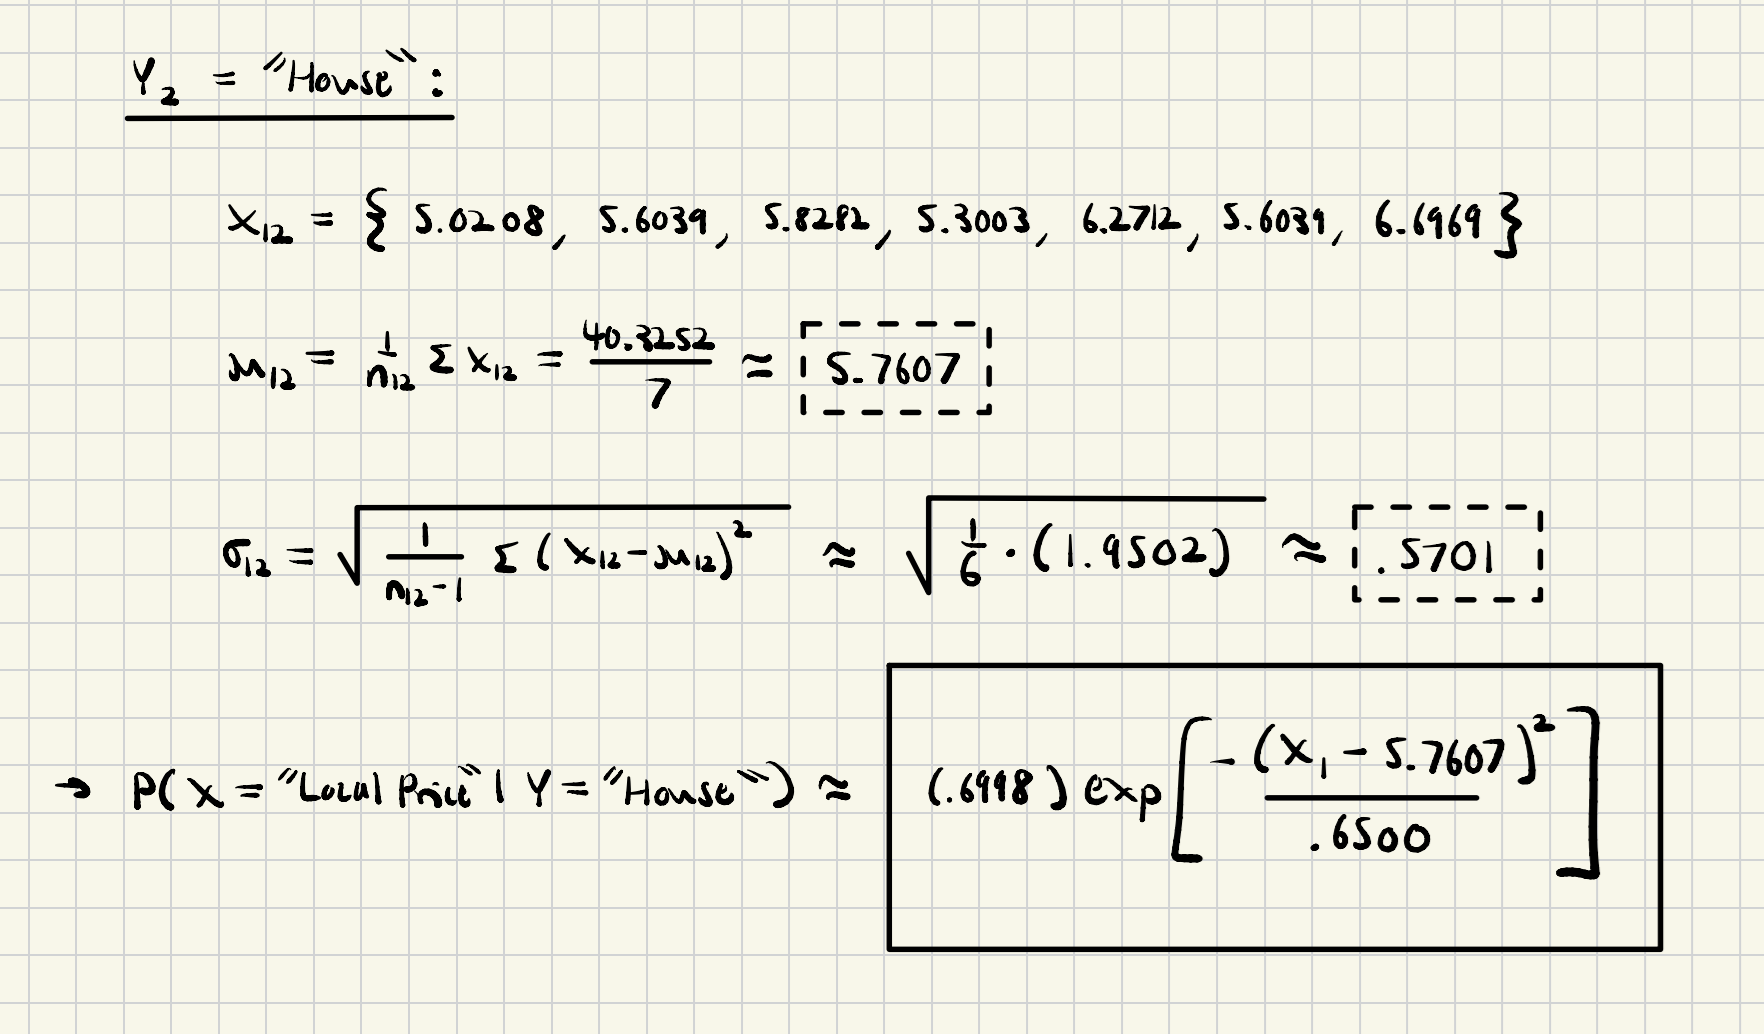 Y₂ = "House":
X₁₂ = { 5.0208, 5.6039, 5.8282, 5.3003, 6.2712, 5.6039, 6.6969 }
μ₁₂ = 1/n₁₂ Σ X₁₂ = 40.3252/7 ≈ 5.7607
σ₁₂ = √(1/(n₁₂-1) Σ (X₁₂-μ₁₂)²) ≈ √(1/6 · (1.9502)) ≈ .5701
→ P( X = "Local Price" | Y = "House") ≈ (.6998) exp[ -(X₁ - 5.7607)²/.6500 ]